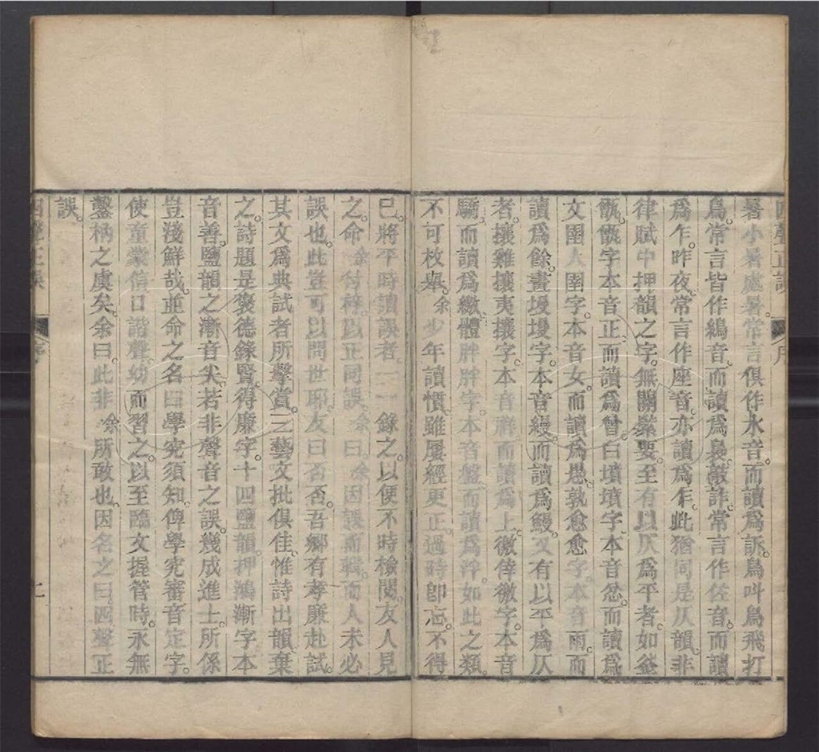 暑小暑處暑常言俱作水音而讀爲訴鳥叫鳥飛打
鳥常言皆作鵰音而讀爲裊敲詐常言作佐音而讀
爲乍昨夜常言作座音亦讀爲乍此猶同是仄韻非
律賦中押韻之字無關緊要至有以仄爲平者如瓮
甑甑字本音正而讀爲曾白墳墳字本音忿而讀爲
文圍人圍字本音女而讀爲愚孰愈愈字本音雨而
讀爲餘畫墁墁字本音縵而讀爲鰻又有以平爲仄
者攘雞攘夷攘字本音祥而讀爲上徼倖徼字本音
驕而讀爲繳體胖胖字本音盤而讀爲泮如此之類
不可枚舉余少年讀慣雖屢經更正過時卽忘不得
已將平時讀誤者一一錄之以便不時檢閱友人見
之命余付梓以正同誤余曰余因誤而輯而人未必
誤也此豈可以問世耶友曰否否吾鄉有孝廉赴試
其文爲典試者所擊賞二藝文批俱佳惟詩出韻棄
之詩題是褒德錄賢得廉字十四鹽韻押鴻漸字本
音善鹽韻之漸音尖若非聲音之誤幾成進士所係
豈淺鮮哉並命之名曰學究須知俾學究審音定字
使童蒙信口諧聲幼而習之以至臨文握管時永無
鑿枘之虞矣余曰此非余所敢也因名之曰四聲正
誤
四聲正誤
序